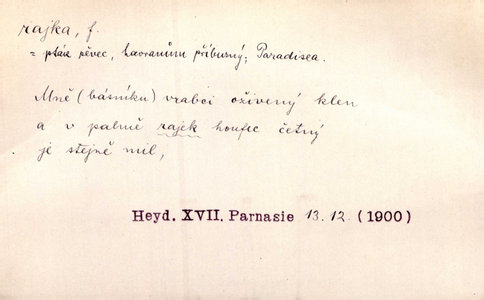 rajka, f.
= pták pěvec, havranům příbuzný; Paradisea.
Mně (básníku) vrabci oživený klen
a v palmě rajek houfec četný
je stejně mil,
Heyd. XVII. Parnasie 13.12. (1900)